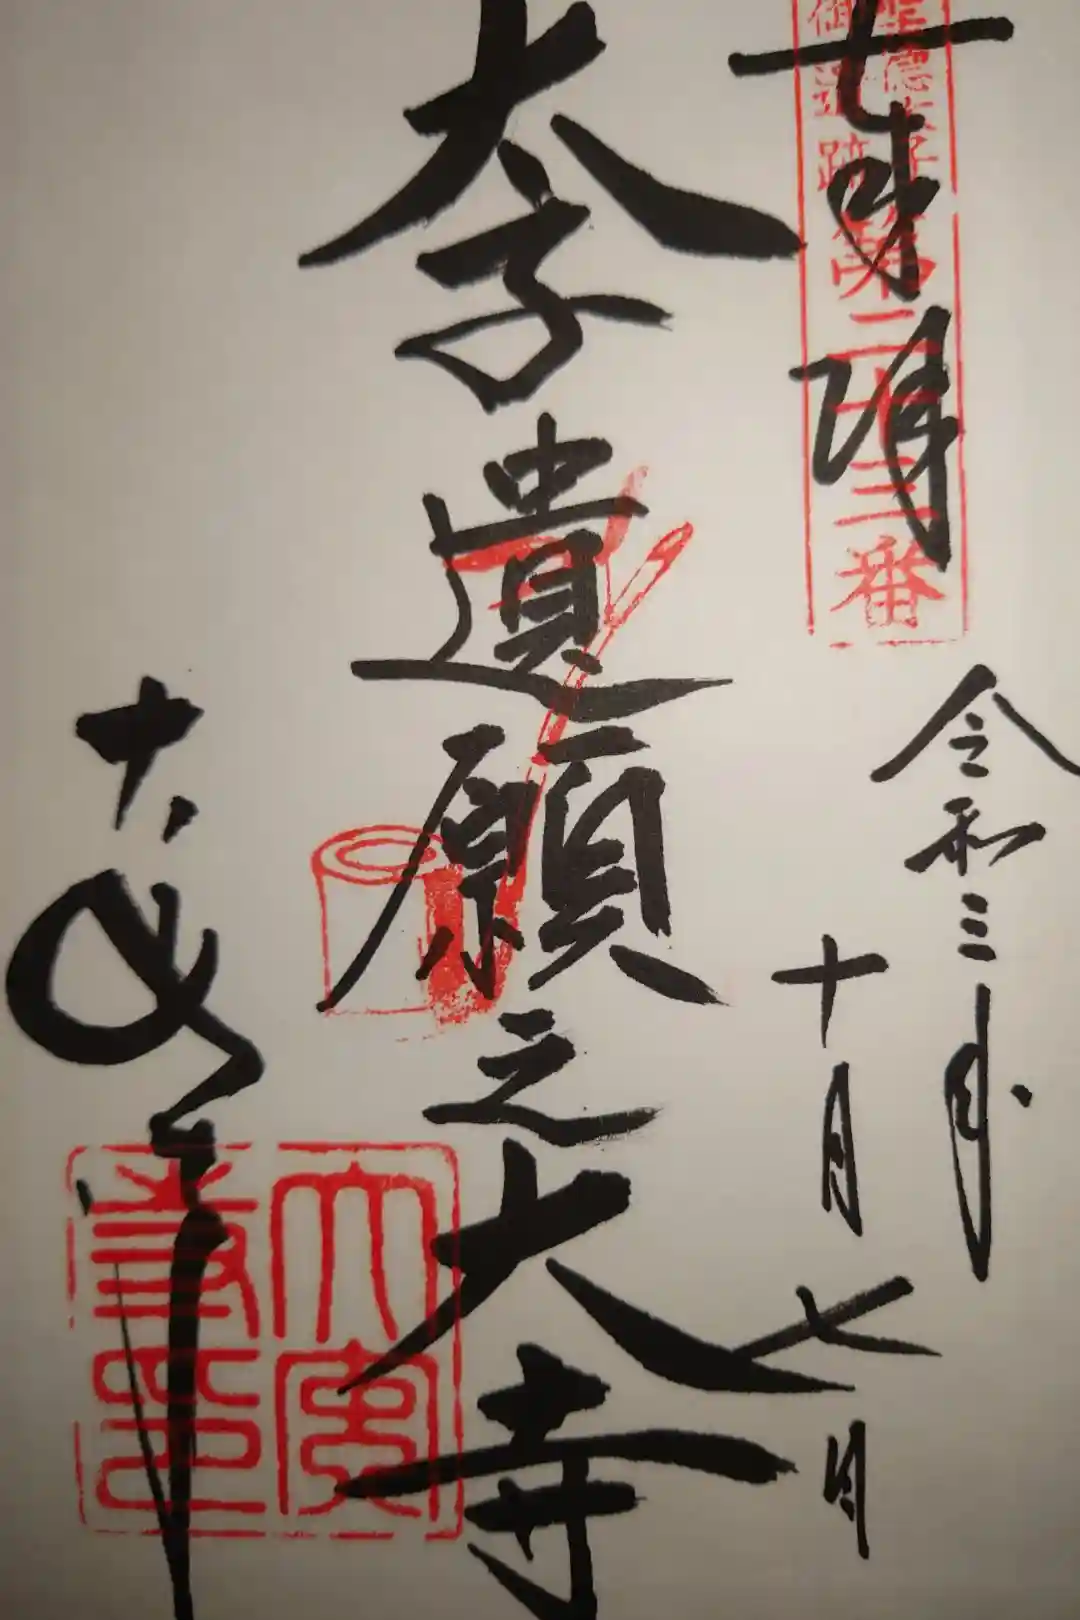 聖徳太子
御遺跡
第二十三番
七東陽
令和三年
十月七日
太子遺願之大寺
大安寺
大安寺印